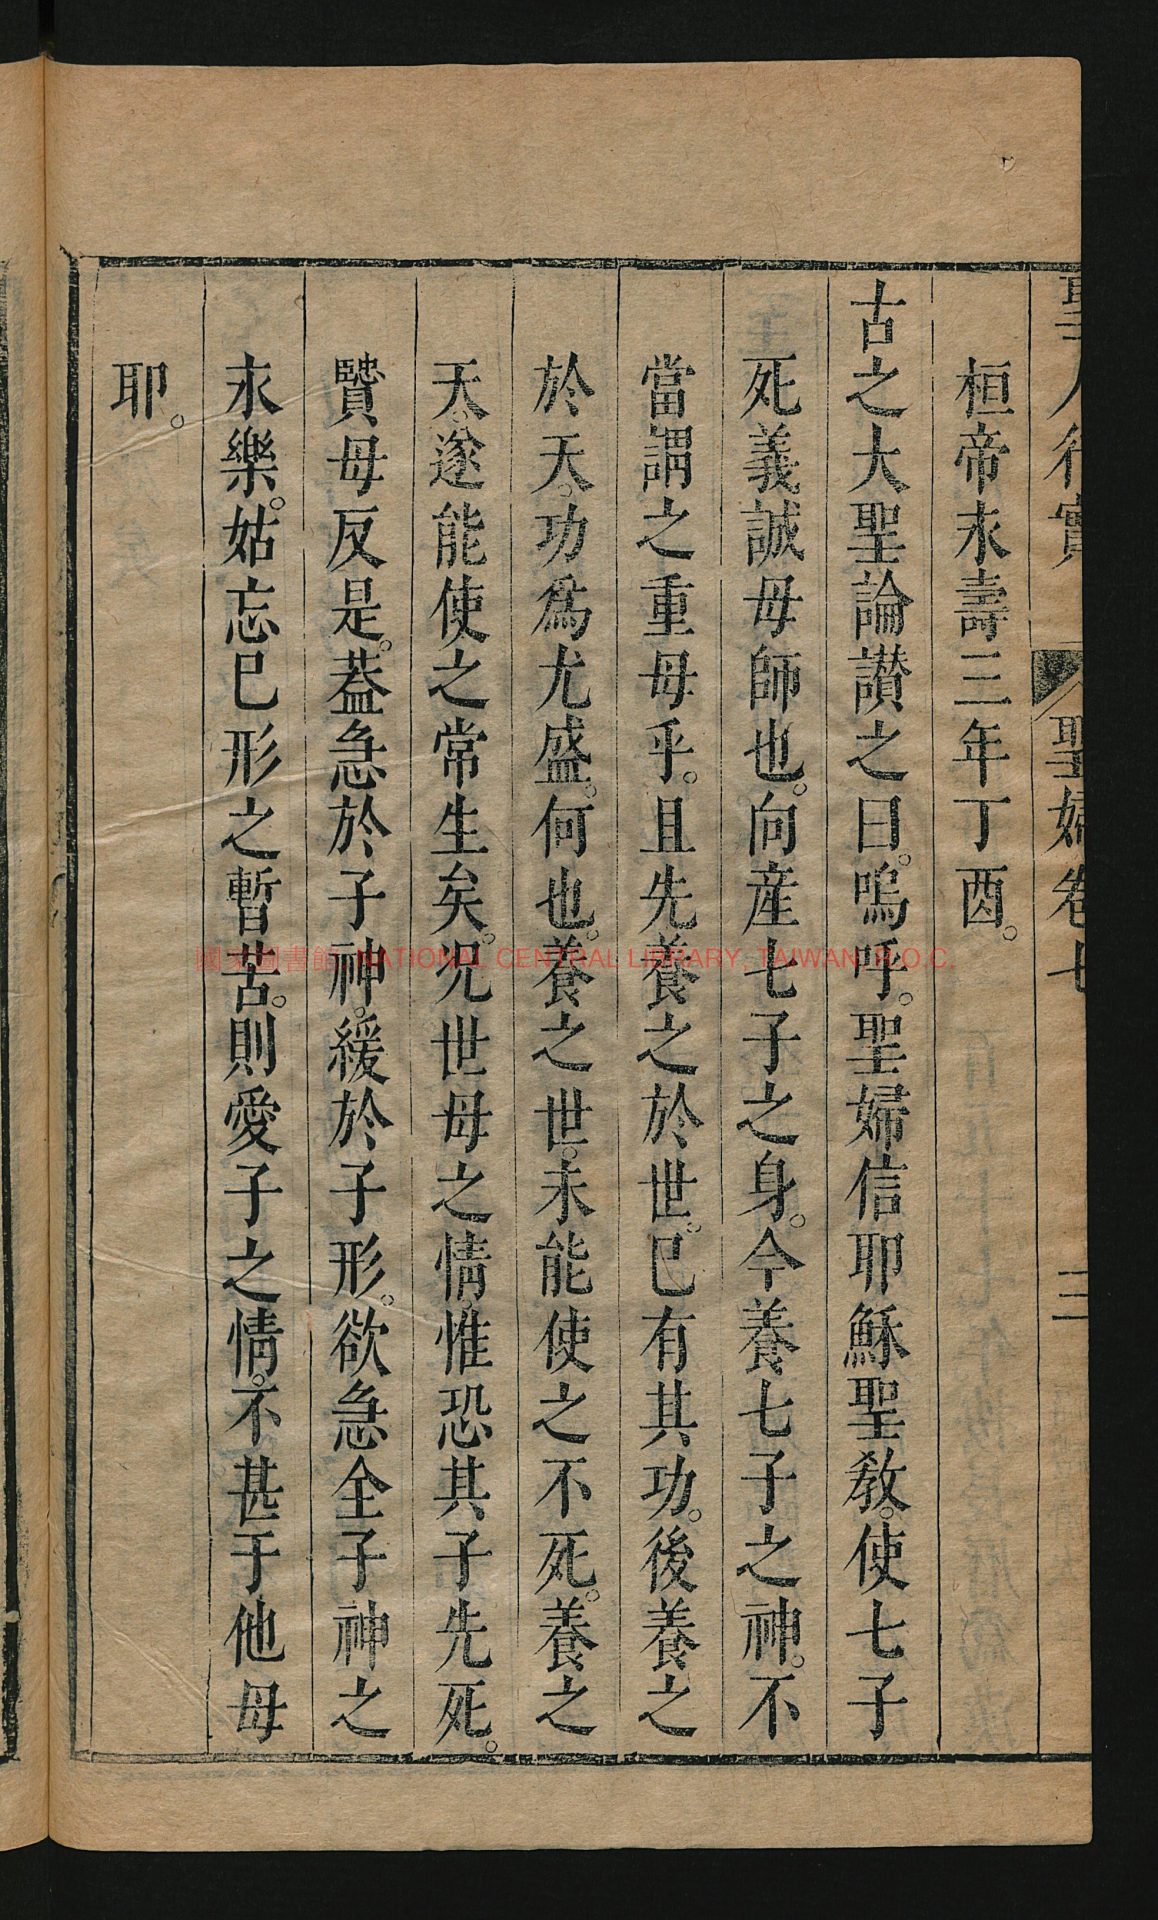 聖人行實 聖婦卷七 三
桓帝永壽三年丁酉。
古之大聖論讃之曰。嗚呼。聖婦信耶穌聖教。使七子
死義誠母師也。向産七子之身。今養七子之神。不
當謂之重母乎。且先養之於世。已有其功。後養之
於天。功爲尤盛。何也。養之世。未能使之不死。養之
天。遂能使之常生矣。况世母之情。惟恐其子先死。
賢母反是。葢急於子神。緩於子形。欲急全子神之
永樂。姑忘已形之暫苦。則愛子之情。不甚于他母
耶。
國家圖書館 NATIONAL CENTRAL LIBRARY, TAIWAN, R.O.C.